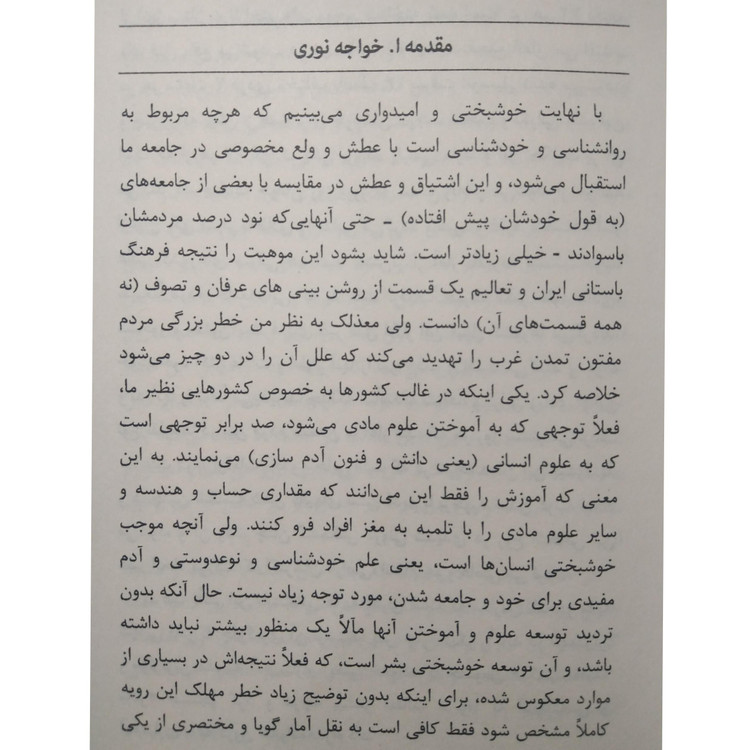 مقدمه ا. خواجه نوری
با نهایت خوشبختی و امیدواری می‌بینیم که هرچه مربوط به
روانشناسی و خودشناسی است با عطش و ولع مخصوصی در جامعه ما
استقبال می‌شود، و این اشتیاق و عطش در مقایسه با بعضی از جامعه‌های
(به قول خودشان پیش افتاده) ــ حتی آنهایی‌که نود درصد مردمشان
باسوادند - خیلی زیادتر است. شاید بشود این موهبت را نتیجه فرهنگ
باستانی ایران و تعالیم یک قسمت از روشن بینی های عرفان و تصوف (نه
همه قسمت‌های آن) دانست. ولی معذلک به نظر من خطر بزرگی مردم
مفتون تمدن غرب را تهدید می‌کند که علل آن را در دو چیز می‌شود
خلاصه کرد. یکی اینکه در غالب کشورها به خصوص کشورهایی نظیر ما،
فعلاً توجهی که به آموختن علوم مادی می‌شود، صد برابر توجهی است
که به علوم انسانی (یعنی دانش و فنون آدم سازی) می‌نمایند. به این
معنی که آموزش را فقط این می‌دانند که مقداری حساب و هندسه و
سایر علوم مادی را با تلمبه به مغز افراد فرو کنند. ولی آنچه موجب
خوشبختی انسان‌ها است، یعنی علم خودشناسی و نوعدوستی و آدم
مفیدی برای خود و جامعه شدن، مورد توجه زیاد نیست. حال آنکه بدون
تردید توسعه علوم و آموختن آنها مآلاً یک منظور بیشتر نباید داشته
باشد، و آن توسعه خوشبختی بشر است، که فعلاً نتیجه‌اش در بسیاری از
موارد معکوس شده، برای اینکه بدون توضیح زیاد خطر مهلک این رویه
کاملاً مشخص شود فقط کافی است به نقل آمار گویا و مختصری از یکی